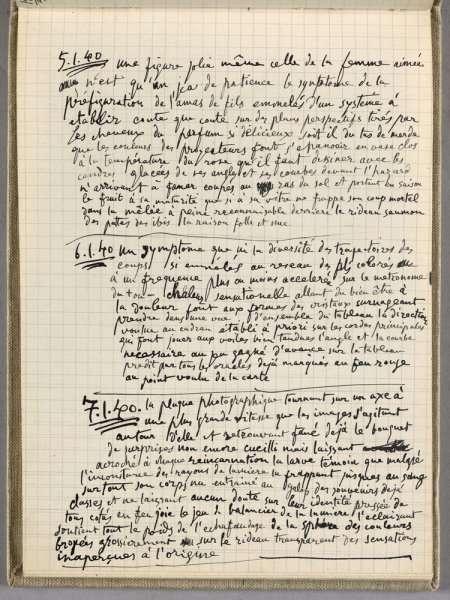 5.1.40 une figure jolie même celle de la femme aimée
n'est qu'un jeu de patience le symptome de la
préfiguration de l'amas de fils emmelés d'un système à
etablir coute que coute sur des plans perspectifs tirés par
les cheveux du parfum si délicieux soit il du tas de merde
que les couleurs des projecteurs font s'épanouir en vase clos
à la température du rose qu'il faut dessiner avec les
cendres glacées de ses angles et ses courbes devant l'hazard
n'arrivant à faner coupes au ras du sol et portant en saison
le fruit à sa maturité que si à sa vitre ne frappe son coup mortel
dans la mêlée à peine reconnaisable derrière le rideau saumon
des pates des ibis la raison folle et nue
6.1.40 un symptome que ni la diversité des trajectoires des
coups si emmélés au reseau des fils colores
à un frequence plus ou moins acceleree sur le metronome
du ton chaleur sensationelle allant du bien être à
la douleur font aux formes des cristaux surnageant
prendre dans une vue d'ensemble du tableau la direction
voulue au cadran établi à priori sur les cordes principales
qui font jouer aux voiles bien tendues l'angle et la courbe
necessaire au jeu gagné d'avance sur le tableau
predit par tous les oracles dejà marqués au feu rouge
au point voulu de la carte
7.1.40. la plaque photographique tournant sur un axe à
une plus grande vitesse que les images s'agitant
autour d'elle et decouvrant fané dejà le bouquet
de surprises non encore cueilli mais laissant
acroché à chaque reincarnation la larve temoin que malgré
l'inconstance des rayons de lumière la frappant jusques au sang
surtout son corps nu entrainé au galop des dejà
classes et ne laissant aucun doute sur leur identité de
tous cotés en feu joie le jeu de balancier de la lumière l'eclairant
soutient tout le poids de l'echafaudage de la sphère des couleurs
broyées grossierement sur le rideau transparent des sensations
inaperçues à l'origine